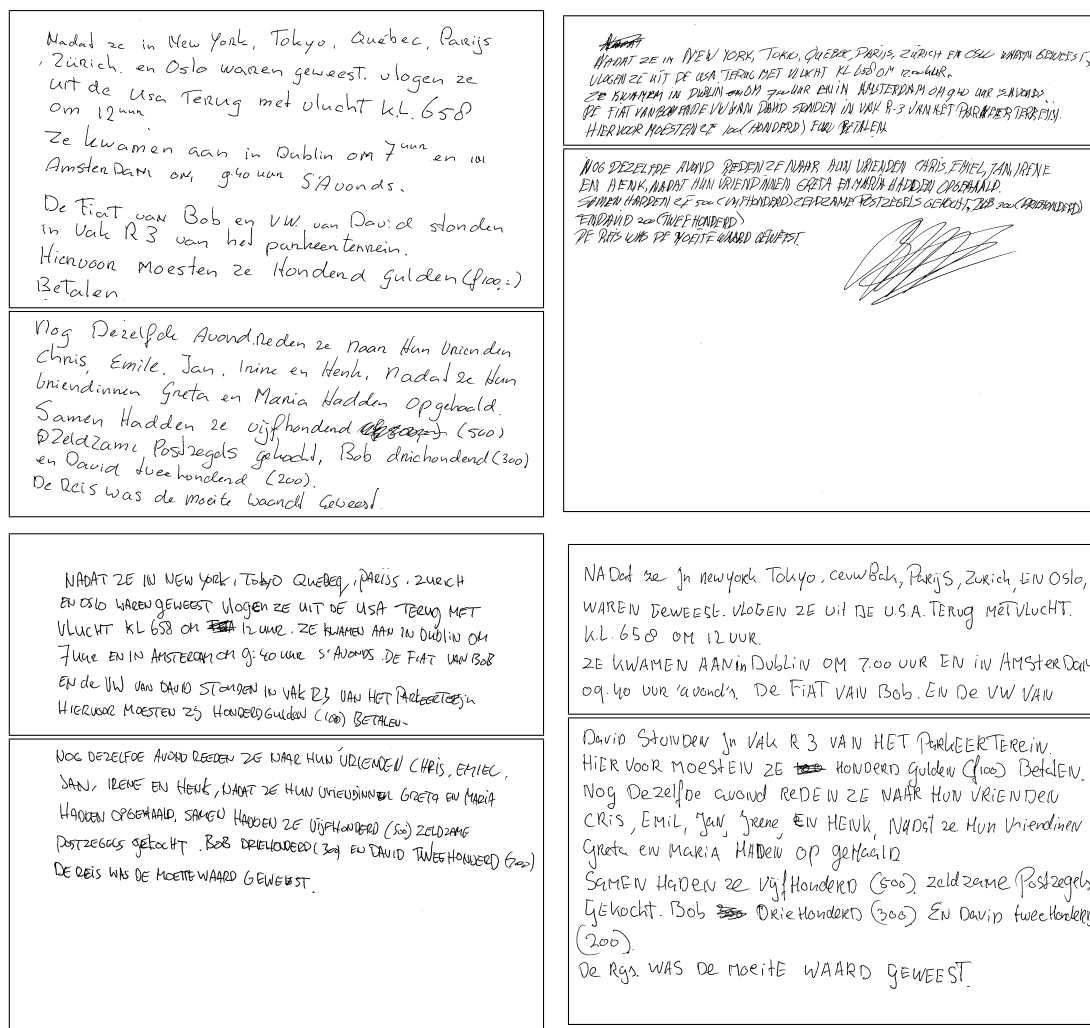 Nadat ze in New York, Tokyo, Québec, Parijs
, Zürich. en Oslo waren geweest. vlogen ze
uit de Usa Terug met vlucht K.L. 658
om 12 uur
Ze kwamen aan in Dublin om 7 uur en in
AmsterDam om, 9:40 uur S'Avonds.
De Fiat van Bob en V.W. van David stonden
in Vak R 3 van het parkeerterrein.
Hiervoor Moesten ze Honderd gulden (f100,=)
Betalen
Nog Dezelfde Avond. Reden ze naar Hun Vrienden
Chris, Emile, Jan, Irine en Henk, Nadat ze Hun
Vriendinnen Greta en Maria Hadden opgehaald.
Samen Hadden ze vijfhonderd (500)
Zeldzame Postzegels gekocht, Bob driehonderd (300)
en David tweehonderd (200).
De Reis was de moeite waard Geweest.
NADAT ZE IN NEW YORK, TOKIO, QUEBEC, PARIJS, ZÜRICH EN WAREN GEWEEST,
VLOGEN ZE UIT DE USA TERUG MET VLUCHT KL 658 OM
ZE KWAMEN IN DUBLIN OM UUR EN IN AMSTERDAM OM 940 UUR SAVONDS.
DE FIAT VAN BOB EN DE VW VAN DAVID STONDEN IN VAK R-3 VAN HET PARKEERTERREIN.
HIERVOOR MOESTEN ZE 100 (HONDERD) BETALEN
NOG DEZELFDE AVOND REDEN ZE NAAR HUN VRIENDEN CHRIS, EMIEL, JAN, IRENE
EN HENK, NADAT HUN VRIENDINNEN GRETA EN MARIA HADDEN OPGEHAALD.
SAMEN HADDEN ZE 500 (VIJFHONDERD) ZELDZAME POSTZEGELS GEKOCHT, BOB 300 (DRIEHONDERD)
EN DAVID 200 (TWEEHONDERD)
DE REIS WAS DE MOEITE WAARD GEWEEST.
NADAT ZE IN NEW YORK, TOKYO QUEBEQ, PARIJS, ZURICH
EN OSLO WAREN GEWEEST VLOGEN ZE UIT DE USA TERUG MET
VLUCHT KL 658 OM 12 UUR. ZE KWAMEN AAN IN DUBLIN OM
7 UUR EN IN AMSTERDAM OM 9:40 UUR S'AVONDS. DE FIAT VAN BOB
EN de VW VAN DAVID STONDEN IN VAK R3 VAN HET
HIERVOOR MOESTEN ZIJ HONDERD GULDEN (100) BETALEN.
NOG DEZELFDE AVOND REEDEN ZE NAAR HUN VRIENDEN CHRIS, EMIEL,
JAN, IRENE EN HENK, NADAT ZE HUN VRIENDINNEN GRETA EN MARIA
HADDEN OPGEHAALD. SAMEN HADDEN ZE VIJFHONDERD (500) ZELDZAME
POSTZEGELS GEKOCHT. BOB DRIEHONDERD (300) EN DAVID TWEEHONDERD (200)
DE REIS WAS DE MOEITE WAARD GEWEEST.
NADat ze In newyork Tokyo, ceuwBak, Parijs, Zurich, EN Oslo,
WAREN GEWEEST. VLOGEN ZE Uit DE U.S.A. TERUG MET VLUCHT.
K.L. 658 OM 12 UUR.
ZE KWAMEN AAN in DUBLIN OM 7.00 UUR EN in AMSterDam
09.40 UUR 'avond's. De FIAT VAN Bob. EN De VW VAN
David Stonden In VAK R 3 VAN HET PARKEERTEREIN.
HIER VOOR MOESTEN ZE HONDERD gulden (f100) BetaLEN.
Nog Dezelfde avond REDEN ZE NAAR HUN VRIENDEN
CRIS, EMIL, Jan, Irene, EN HENK, NADat ze Hun Vriendinen
Greta en MARIA HADEN op geHaald
SAMEN HADEN ze VijfHonderd (500) zeldzame Postzegels
GEKocht. Bob DRieHonderd (300) EN David tweeHonderd
(200).
De Rijs. WAS De MoeitE WAARD GEWEEST.